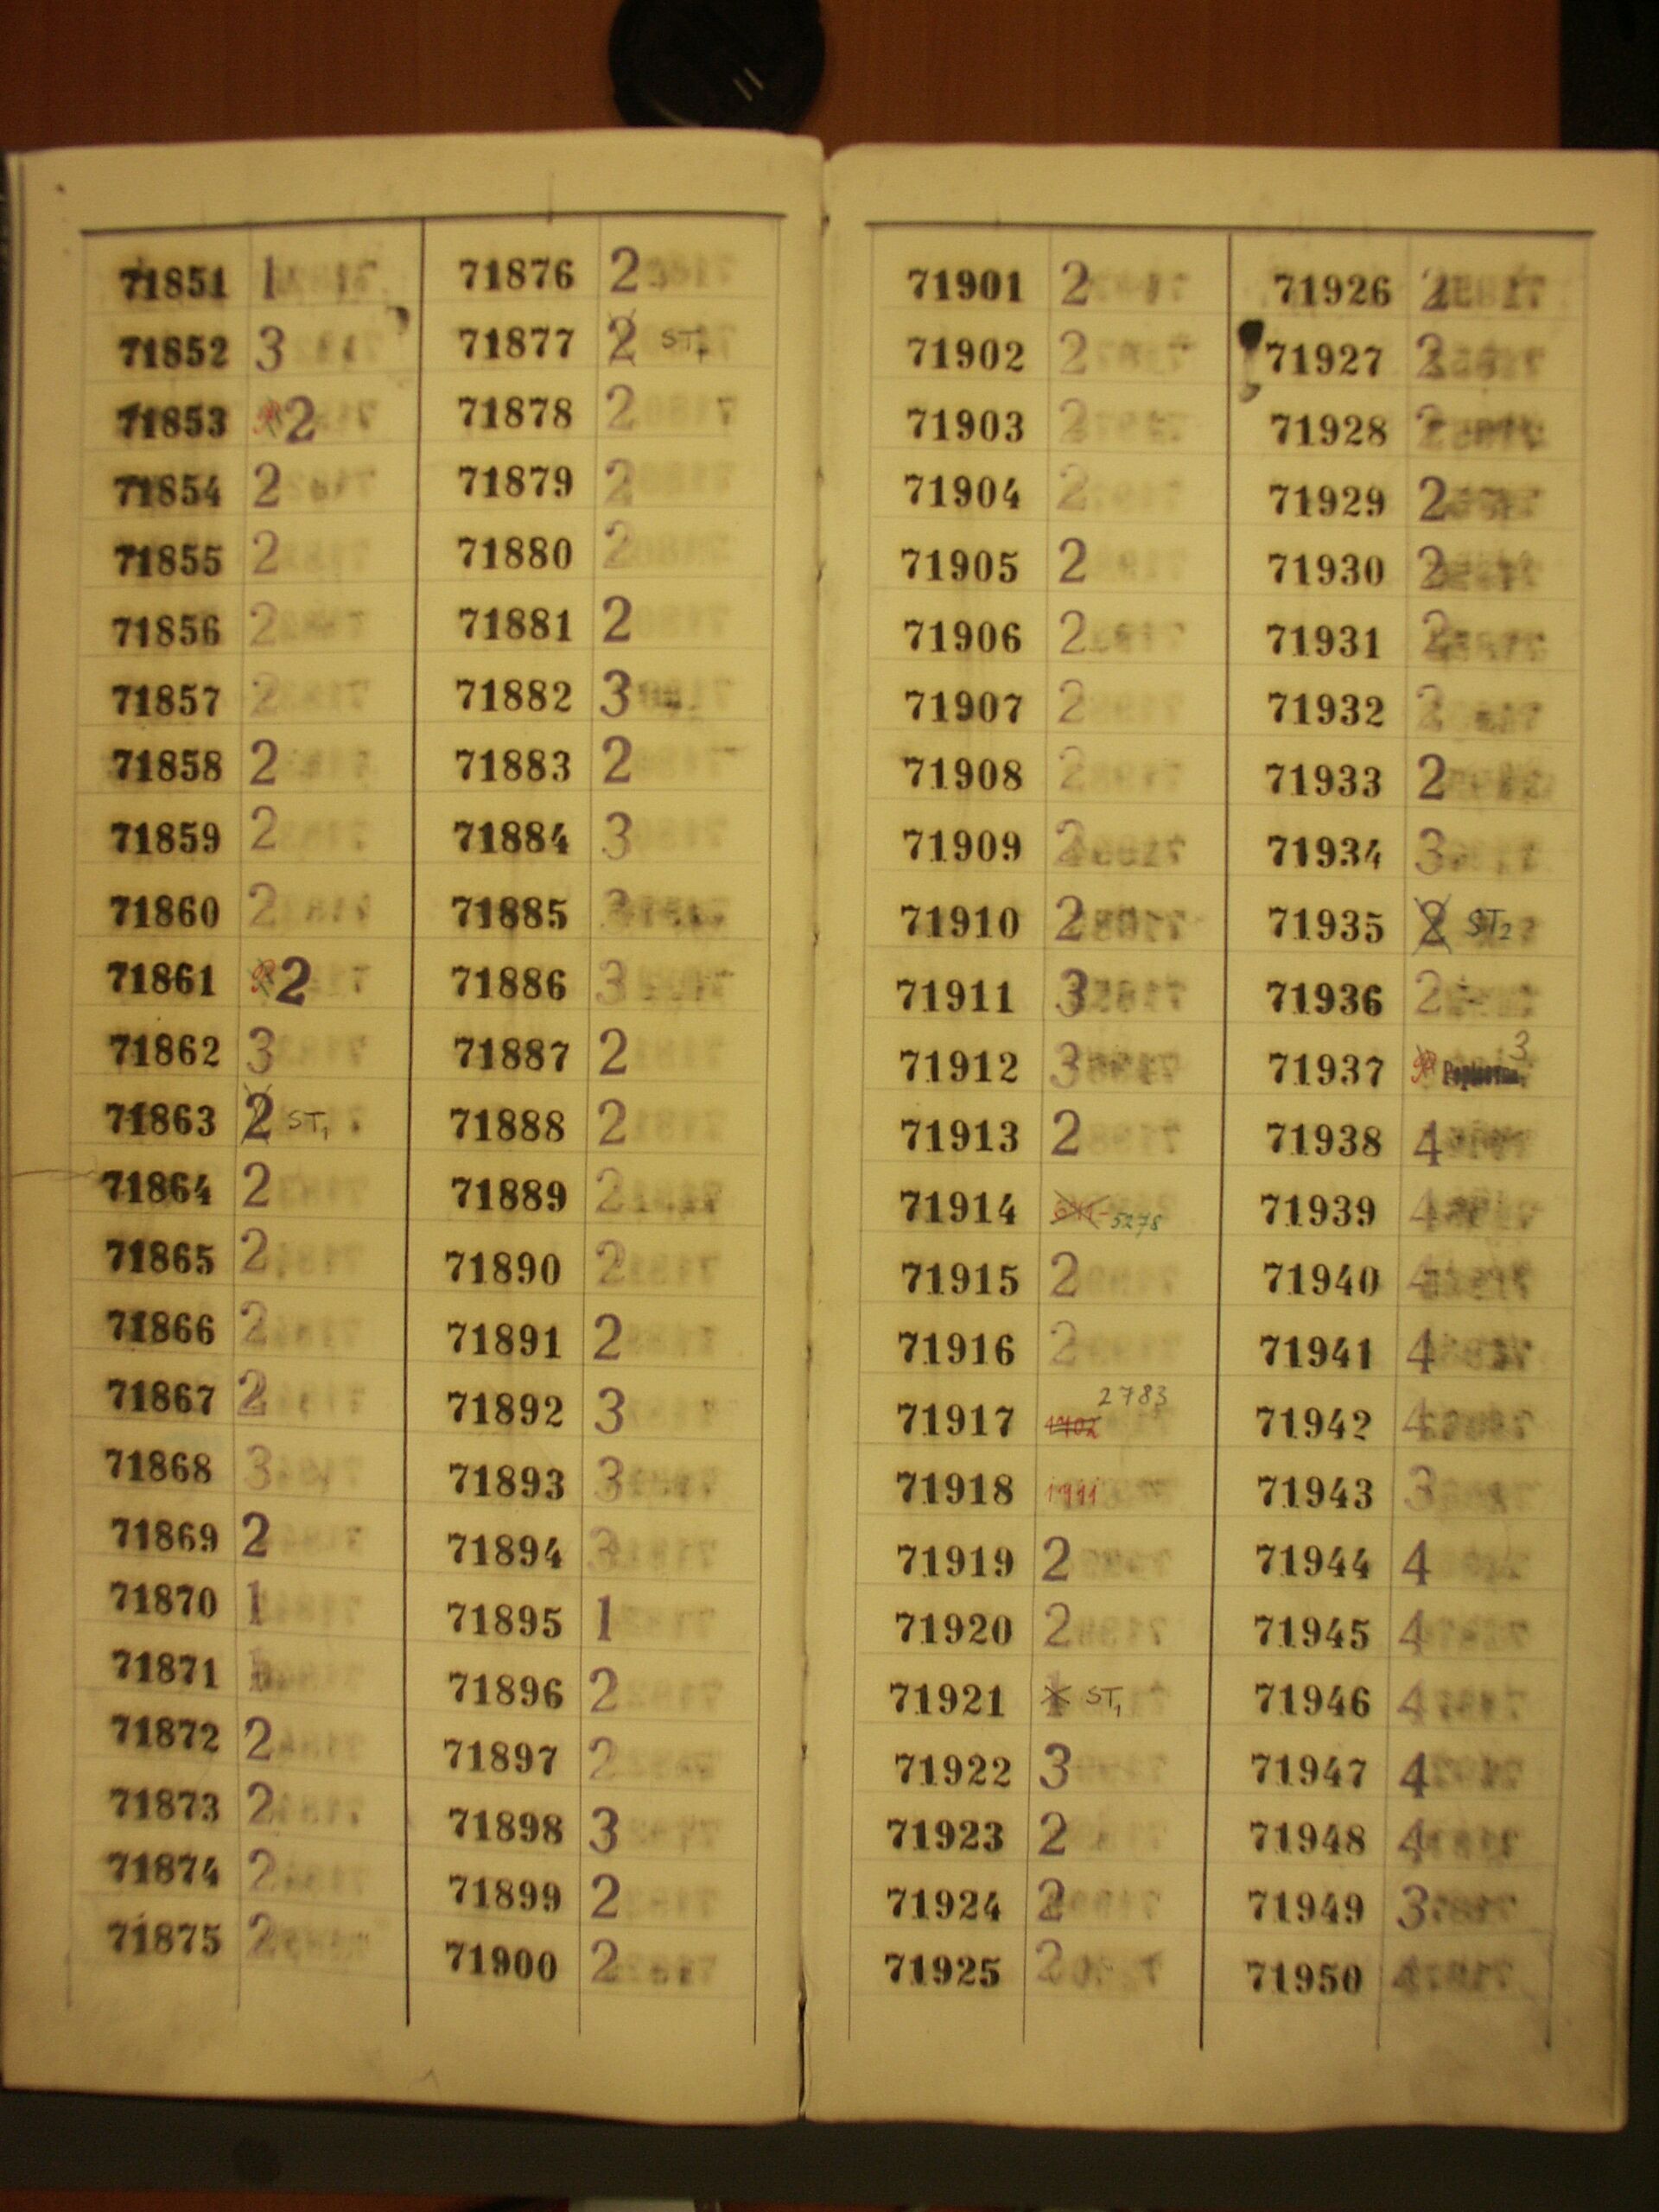 71851 1
71852 3
71853 2
71854 2
71855 2
71856 2
71857 2
71858 2
71859 2
71860 2
71861 2
71862 3
71863 2 ST1
71864 2
71865 2
71866 2
71867 2
71868 3
71869 2
71870 1
71871 1
71872 2
71873 2
71874 2
71875 2
71876 2
71877 2
71878 2
71879 2
71880 2
71881 2
71882 3
71883 2
71884 3
71885 3
71886 3
71887 2
71888 2
71889 2
71890 2
71891 2
71892 3
71893 3
71894 3
71895 1
71896 2
71897 2
71898 3
71899 2
71900 2
71901 2
71902 2
71903 2
71904 2
71905 2
71906 2
71907 2
71908 2
71909 2
71910 2
71911 3
71912 3
71913 2
71914 5278
71915 2
71916 2
71917 1702 2783
71918 1911
71919 2
71920 2
71921 1 ST1
71922 3
71923 2
71924 2
71925 2
71926 2
71927 2
71928 2
71929 2
71930 2
71931 2
71932 2
71933 2
71934 3
71935 2 ST2
71936 2
71937 3
71938 4
71939 4
71940 4
71941 4
71942 4
71943 3
71944 4
71945 4
71946 4
71947 4
71948 4
71949 3
71950 4